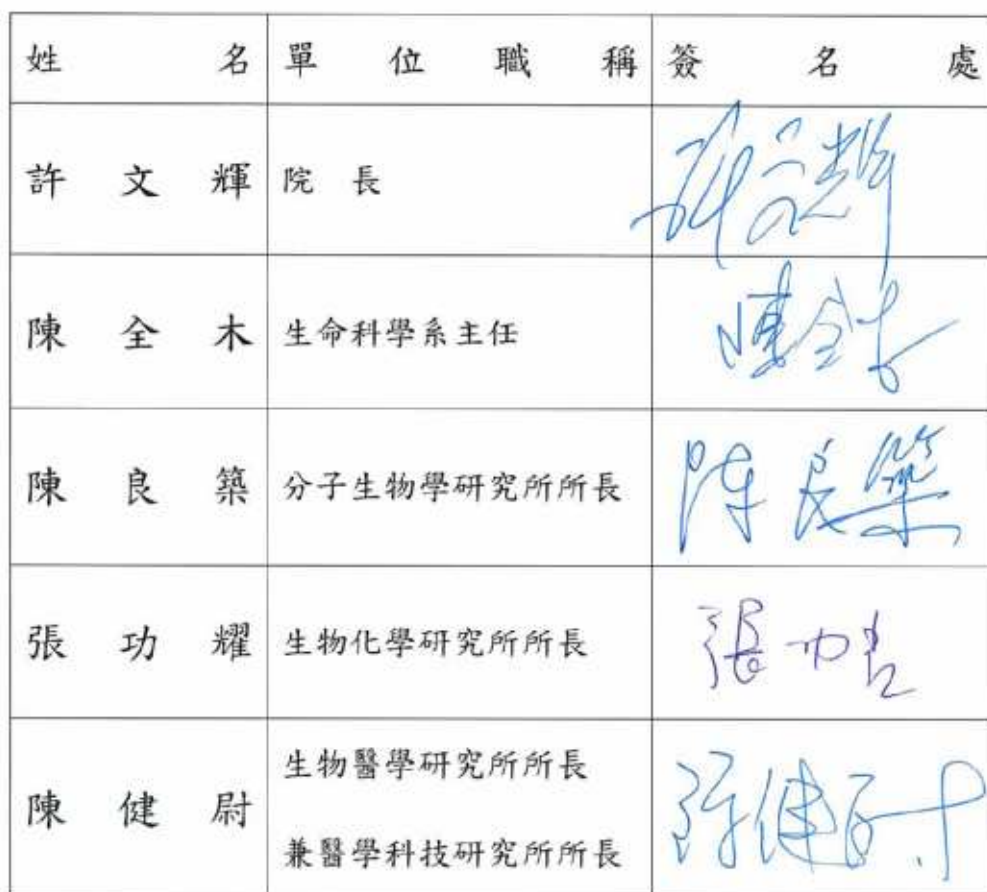 姓名 單位職稱 簽名處
許文輝 院長 許文輝
陳全木 生命科學系主任 陳全木
陳良築 分子生物學研究所所長 陳良築
張功耀 生物化學研究所所長 張功耀
陳健尉 生物醫學研究所所長 陳健尉
兼醫學科技研究所所長